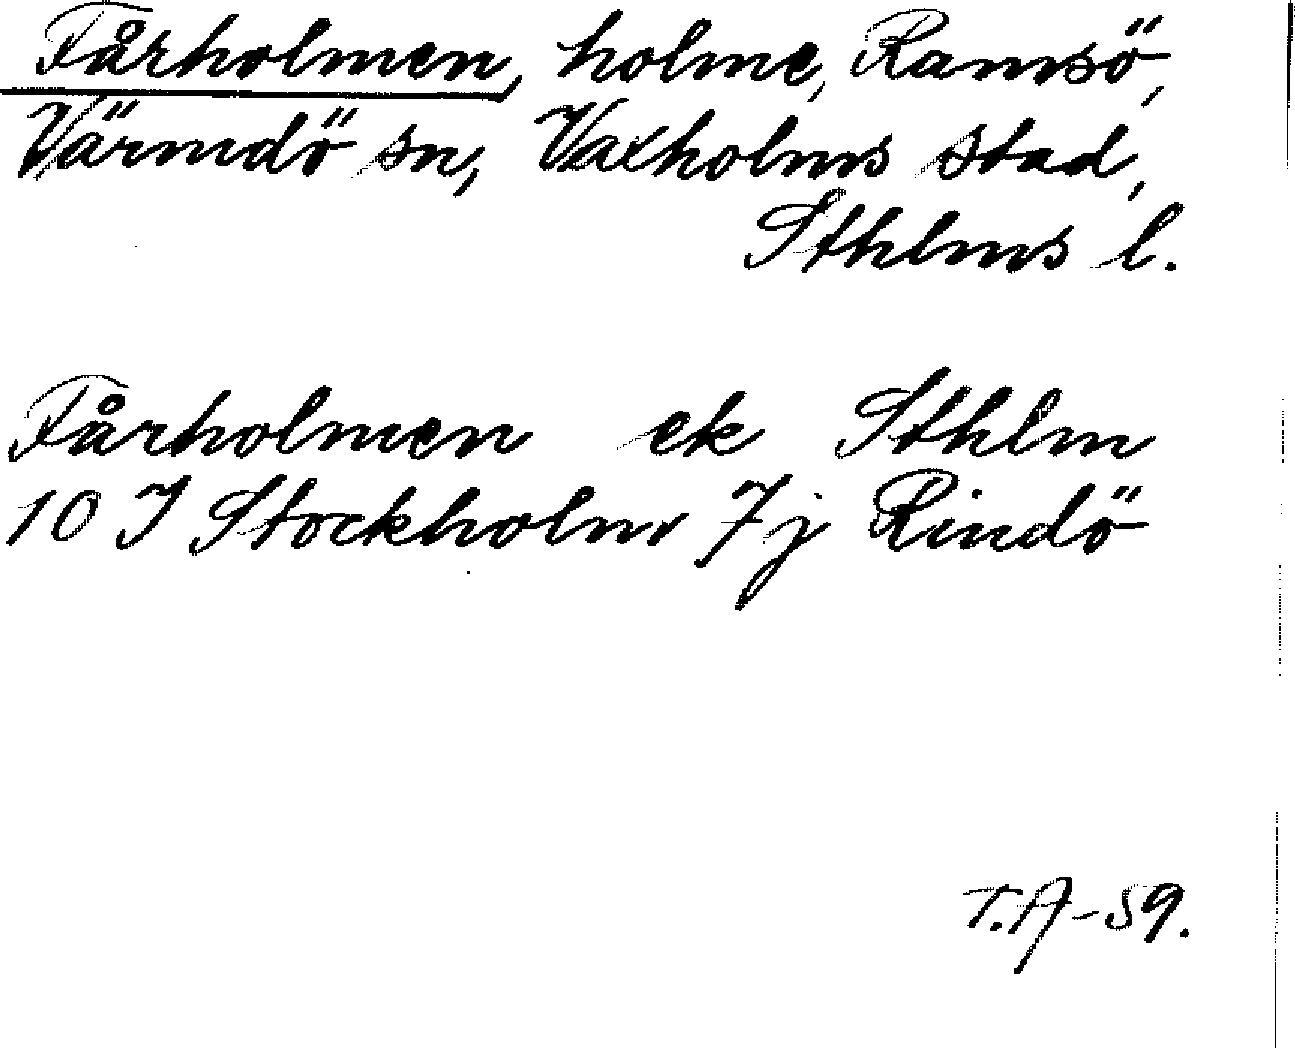 Fårholmen, holme, Ramsö,
Värmdö sn, Vaxholms stad,
Sthlms l.
Fårholmen ek Sthlm
10 I Stockholm 7j Rindö
T.A-59.